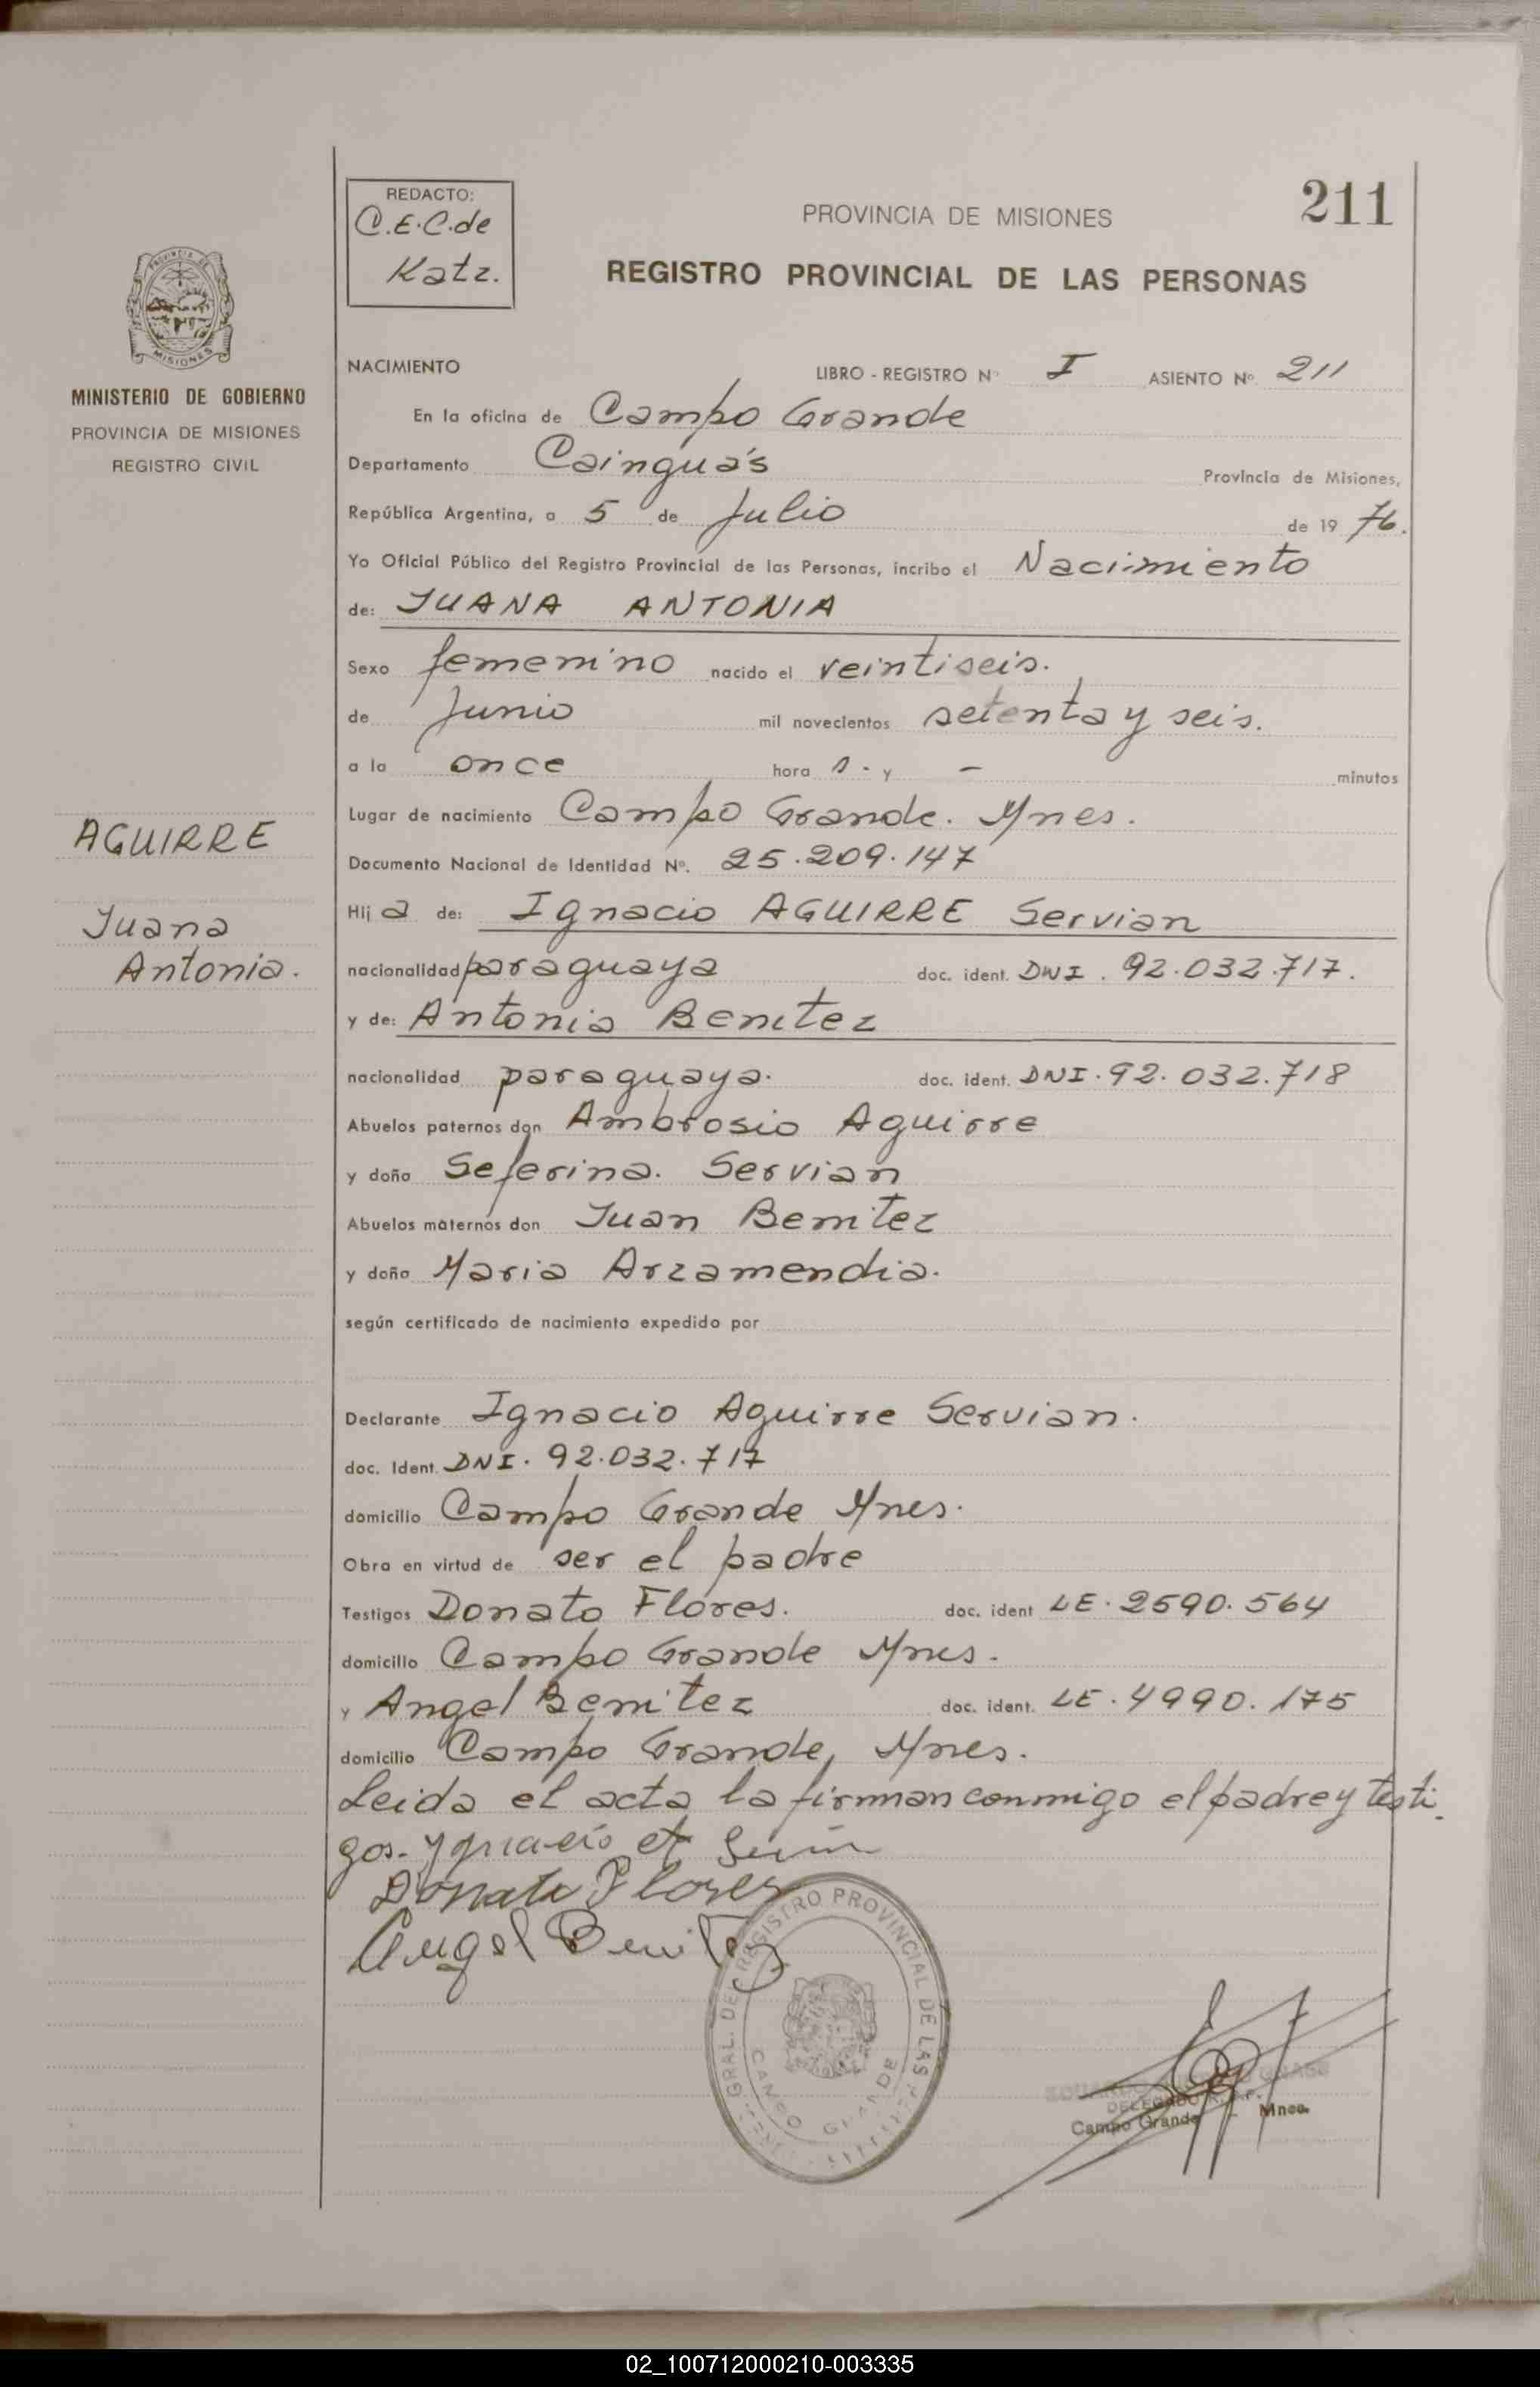 REDACTO:
C.E.C. de
Katz.
PROVINCIA DE MISIONES
211
REGISTRO PROVINCIAL DE LAS PERSONAS
MISIONES
MINISTERIO DE GOBIERNO
PROVINCIA DE MISIONES
REGISTRO CIVIL
AGUIRRE
Juana
Antonia.
NACIMIENTO LIBRO - REGISTRO Nº I ASIENTO Nº 211
En la oficina de Campo Grande
Departamento Cainguás Provincia de Misiones,
República Argentina, a 5 de Julio de 19 76.
Yo Oficial Público del Registro Provincial de las Personas, incribo el Nacimiento
de: JUANA ANTONIA
Sexo femenino nacido el veintiseis.
de Junio mil novecientos setenta y seis.
a la once hora s - y - minutos
Lugar de nacimiento Campo Grande. Mnes.
Documento Nacional de Identidad Nº. 25.209.147
Hij a de: Ignacio AGUIRRE Servian
nacionalidad paraguaya doc. ident. DNI. 92.032.717.
y de: Antonia Benitez
nacionalidad paraguaya. doc. ident. DNI. 92.032.718
Abuelos paternos don Ambrosio Aguirre
y doña Seferina. Servian
Abuelos maternos don Juan Benitez
y doña Maria Arzamendia.
según certificado de nacimiento expedido por
Declarante Ignacio Aguirre Servian.
doc. Ident. DNI. 92.032.717
domicilio Campo Grande Mnes.
Obra en virtud de ser el padre
Testigos Donato Flores. doc. ident LE. 2590.564
domicilio Campo Grande Mnes.
y Angel Benitez doc. ident. LE. 4990.175
domicilio Campo Grande, Mnes.
Leida el acta la firman conmigo el padre y testi
gos.
Donato Flores
Angel Benitez
GRAL. DEL REGISTRO PROVINCIAL DE LAS
CAMPO GRANDE
DELEGADO
Campo Grande - Mnes.
02_100712000210-003335